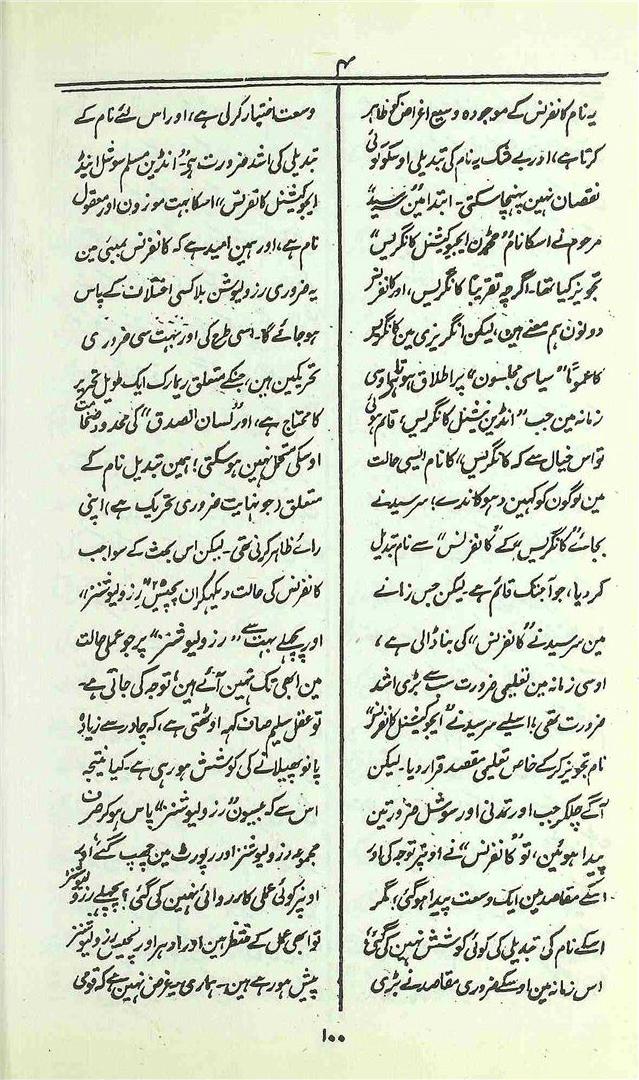 ۴
یہ نام کانفرنس کے موجودہ وسیع اغراض کو ظاہر
کرتا ہے، اور بے شک یہ نام کی تبدیلی اوسکو کوئی
نقصان نہین پہنچا سکتی۔ ابتدا مین "سرسید"
مرحوم نے اسکا نام "محمڈن ایجوکیشنل کانگریس"
تجویز کیا تھا۔ اگرچہ تقریباً کانگریس، اور کانفرنس
دونون ہم معنے ہین، لیکن انگریزی مین کانگریس
کا عموماً "سیاسی مجلسون" پر اطلاق ہوتا ہے اوسی
زمانہ مین جب "انڈین نیشنل کانگریس" قائم ہوئی
تو اس خیال سے کہ کانگریس، کا نام ایسی حالت
مین لوگون کو کہین دھوکا ندے؛ سرسید نے
بجائے "کانگریس" کے "کانفرنس" سے نام تبدیل
کر دیا، جو آجتک قائم ہے۔ لیکن جس زمانے
مین سرسید نے "کانفرنس" کی بنا ڈالی ہے،
اوسی زمانہ مین تعلیمی ضرورت سب سے بڑی اشد
ضرورت تھی؛ اسلیے سرسید نے "ایجوکیشنل کانفرنس"
نام تجویز کرکے خاص تعلیمی مقصد قرار دیا۔ لیکن
آگے چلکر جب اور تمدنی اور سوشل ضرورتین
پیدا ہوئین، تو "کانفرنس" نے اونپر توجہ کی اور
اسکے مقاصد مین ایک وسعت پیدا ہوگئی؛ مگر
اسکے نام کی تبدیلی کی کوئی کوشش نہین کی گئی؛
اس زمانہ مین اوسکے ضروری مقاصد نے بڑی
وسعت اختیار کرلی ہے، اور اس لئے نام کے
تبدیلی کی اشد ضرورت ہے۔ "انڈین مسلم سوشل اینڈ
ایجوکیشنل کانفرنس" اسکا بہت موزون اور معقول
نام ہے، اور ہمین امید ہے کہ کانفرنس بمبئی مین
یہ ضروری رزولیوشن بلا کسی اختلاف کے پاس
ہو جائے گا۔ اسی طرح کی اور بہت سی ضروری
تحریکین ہین، جنکے متعلق ریمارک ایک طویل تحریر
کا محتاج ہے، اور "لسان الصدق" کی محدود ضخامت
اوسکی متحمل نہین ہوسکتی؛ ہمین تبدیل نام کے
متعلق (جو نہایت ضروری تحریک ہے) اپنی
رائے ظاہر کرنی تھی۔ لیکن اس بحث کے سوا جب
کانفرنس کی حالت دیکھکر ان پیش "رزولیوشنز"
اور پچھلے بہت سے "رزولیوشنز" پر جو عملی حالت
مین ابھی تک نہین آئے ہین؛ توجہ کی جاتی ہے۔
تو عقل سلیم صاف کہہ اوٹھتی ہے، کہ چادر سے زیادہ
پانو پھیلانے کی کوشش ہو رہی ہے۔ کیا نتیجہ
اس سے کہ بیسیون "رزولیوشنز" پاس ہو کر صرف
مجموعہ رزولیوشنز اور رپورٹ مین چھپ گئے؛ اور
اونپر کوئی عملی کارروائی نہین کی گئی؟ پچھلے رزولیوشنز
تو ابھی عمل کے منتظر ہین اور ادہر اور پچیس رزولیوشنز
پیش ہو رہے ہین۔ ہماری یہ غرض نہین ہے کہ قومی
۱۰۰